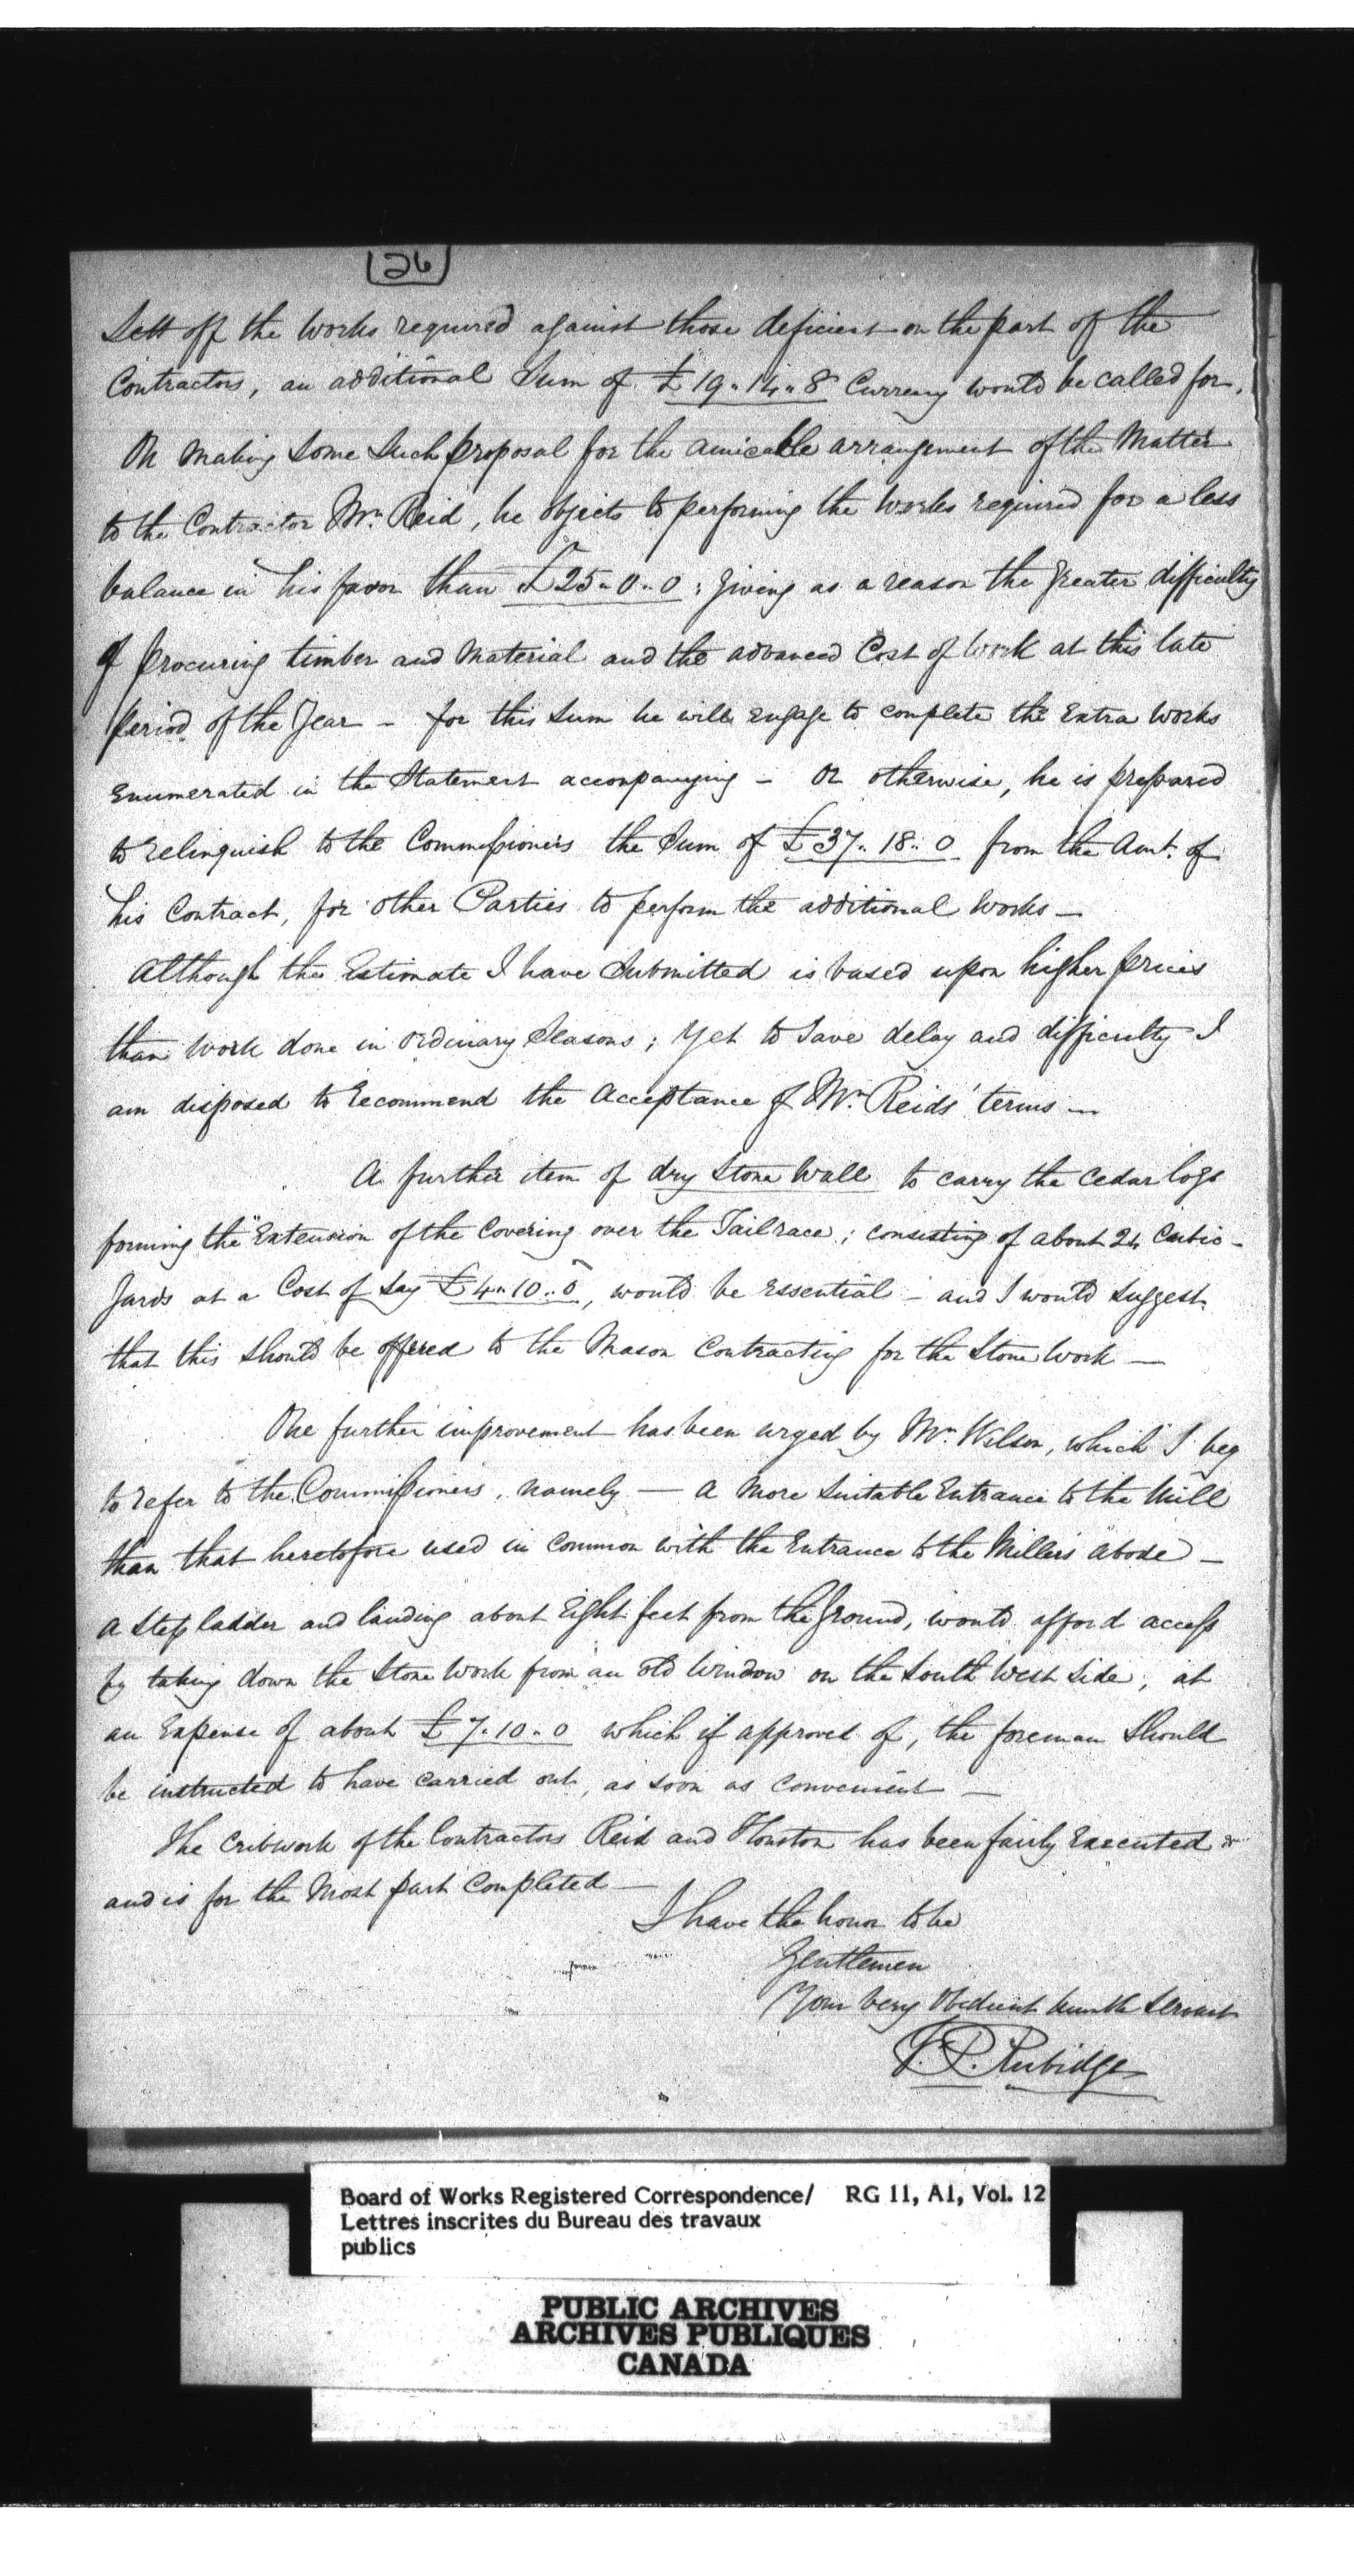 26
Sett off the works required against those deficient on the part of the
Contractors, an additional Sum of £19"14"8 Currency would be called for.
On making some such proposal for the amicable arrangement of the Matter
to the Contractor Mr. Reid, he objects to performing the works required for a less
balance in his favor than £25"0"0; giving as a reason the greater difficulty
of procuring timber and material and the advanced Cost of work at this late
period of the Year – for this Sum he will engage to complete the Extra works
Enumerated in the Statement accompanying – Or otherwise, he is prepared
to relinquish to the Commissioners the Sum of £37"18"0 from the Amt. of
his Contract, for other Parties to perform the additional works –
Although the Estimate I have Submitted is based upon higher prices
than work done in ordinary Seasons; Yet to save delay and difficulty I
am disposed to recommend the Acceptance of Mr. Reids' terms –
A further item of dry Stone Wall to carry the cedar logs
forming the "Extension of the Covering over the Tailrace; consisting of about 24 Cubic
Yards at a Cost of say £4"10"0, would be essential – and I would suggest
that this should be offered to the Mason Contracting for the Stone work –
One further improvement has been urged by Mr. Wilson, which I beg
to refer to the Commissioners, namely – A more suitable Entrance to the Mill
than that heretofore used in common with the Entrance to the Millers abode –
A Step ladder and landing about Eight feet from the ground, would afford access
by taking down the Stone work from an old window on the South West side, at
an Expense of about £7"10"0 which if approved of, the foreman should
be instructed to have carried out, as soon as convenient –
The Cribwork of the Contractors Reid and Houston has been fairly Executed
and is for the Most part Completed –
I have the honor to be
Gentlemen
Your very Obedient humble Servant
F. P. Rubidge
Board of Works Registered Correspondence/ RG 11, A1, Vol. 12
Lettres inscrites du Bureau des travaux
publics
PUBLIC ARCHIVES
ARCHIVES PUBLIQUES
CANADA